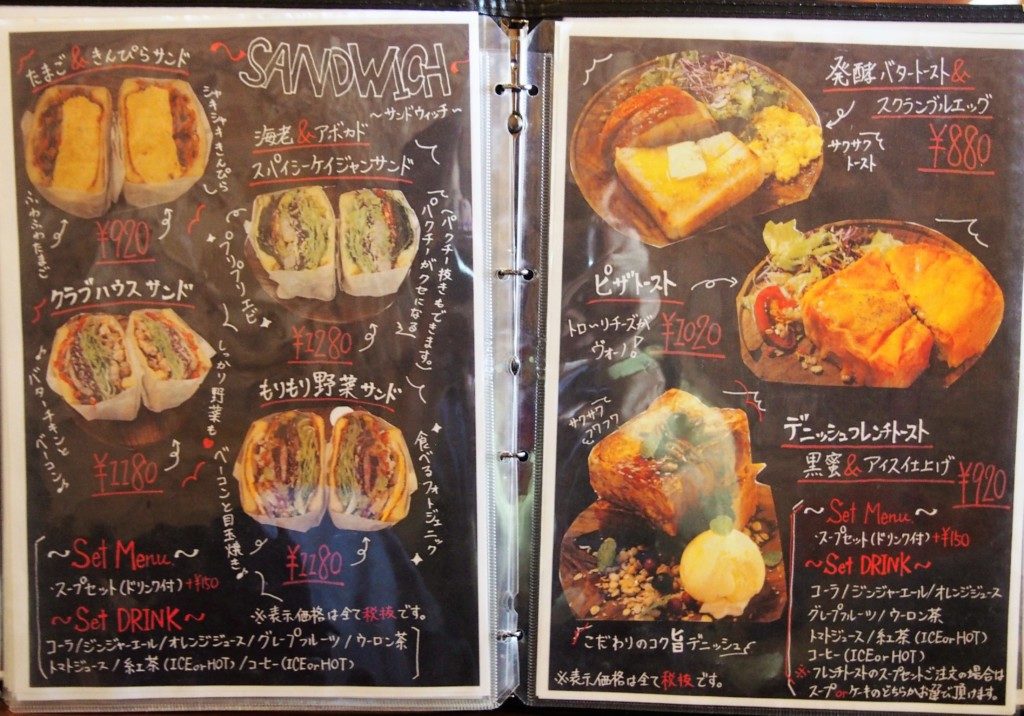 SANDWICH
～サンドウィッチ～
たまご&きんぴらサンド
シャキシャキきんぴら
ふわふわたまご
¥920
海老&アボカド
スパイシーケイジャンサンド
プリプリエビ
パクチーがクセになる
(パクチー抜きもできます。)
¥1280
クラブハウスサンド
♪バターチキンと
ベーコン♪
¥1180
もりもり野菜サンド
しっかり野菜も♥
ベーコンと目玉焼き♪
食べるフォトジェニック
¥1180
～Set Menu～
・スープセット(ドリンク付)+¥150
～Set DRINK～
コーラ/ジンジャーエール/オレンジジュース/グレープフルーツ/ウーロン茶
トマトジュース/紅茶(ICE or HOT)/コーヒー(ICE or HOT)
※表示価格は全て税抜です。
発酵バタートースト&
スクランブルエッグ
¥880
サクサク
トースト
ピザトースト
¥1020
トローリチーズが
ヴォーノ!
サクサク
フワフワ
デニッシュフレンチトースト
黒蜜&アイス仕上げ
¥920
こだわりのコク旨デニッシュ
※表示価格は全て税抜です。
～Set Menu～
・スープセット(ドリンク付)+¥150
～Set DRINK～
コーラ/ジンジャーエール/オレンジジュース
グレープフルーツ/ウーロン茶
トマトジュース/紅茶(ICE or HOT)
コーヒー(ICE or HOT)
※・フレンチトーストのスープセットご注文の場合は
スープorケーキのどちらかお選びで頂けます。